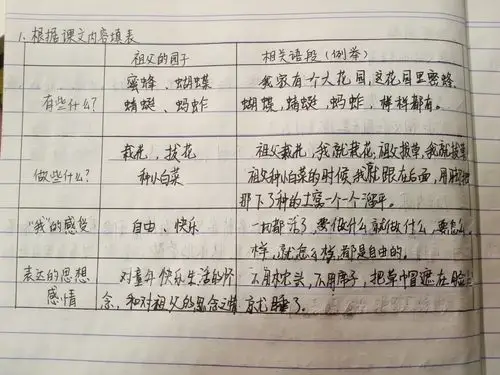 1. 根据课文内容填表
祖父的园子 相关语段(例举)
有些什么? 蜜蜂、蝴蝶 我家有一个大花园,这花园里蜜蜂、
蜻蜓、蚂蚱 蝴蝶,蜻蜓,蚂蚱,样样都有。
做些什么? 栽花,拔花 祖父栽花,我就栽花,祖父拔草,我就拔草
种小白菜 祖父种小白菜的时候我就跟在后面,用脚把
那下了种的土窝一个一个溜平。
"我"的感受 自由、快乐 一切都活了,要做什么就做什么,要怎么
样,就怎么样,都是自由的。
表达的思想 对童年快乐生活的怀 不用枕头,不用席子,把草帽遮在脸上
感情 念,和对祖父的思念之情 就睡了。